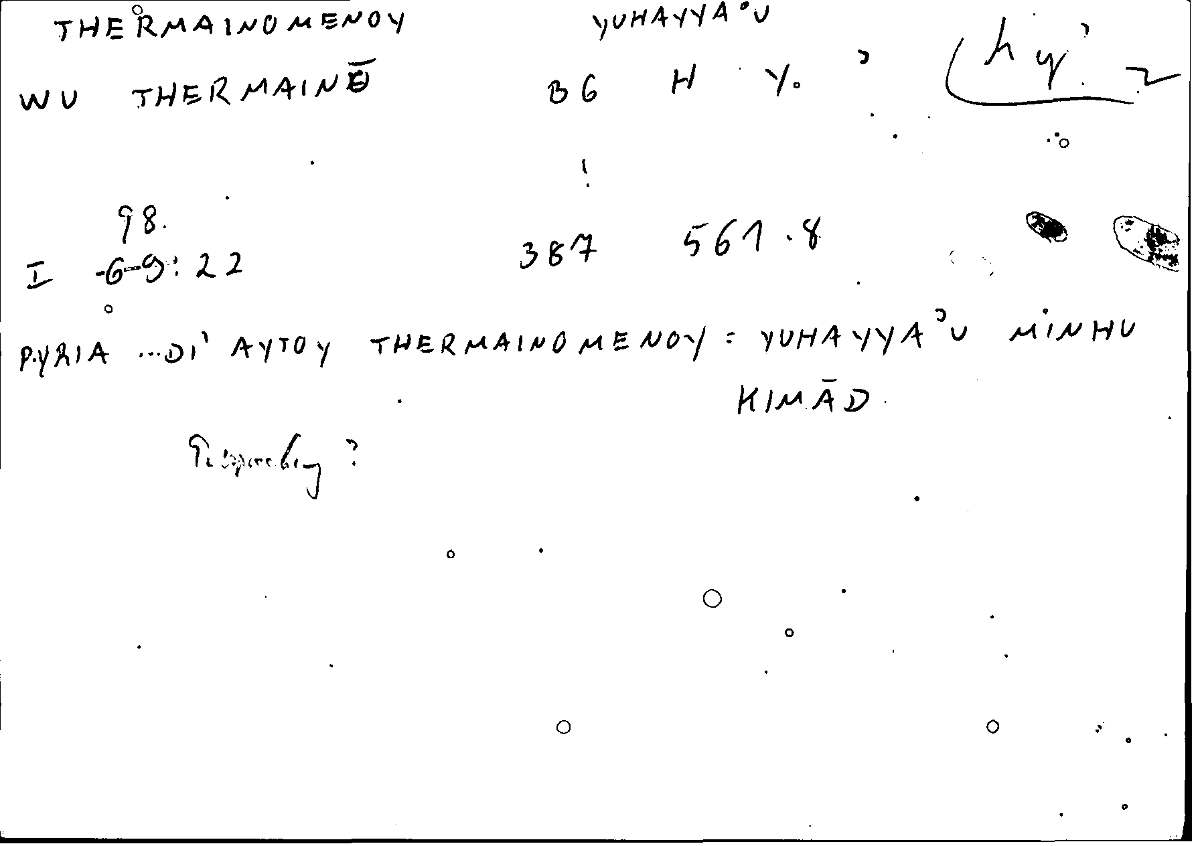 THERMAINOMENOY YUHAYYAʾU
WU THERMAINŌ B6 H Y. ʾ hyʾ 2
98.
I -6-9:22 387 561.8
PYRIA ...DI' AYTOY THERMAINOMENOY = YUHAYYAʾU MINHU
KIMĀD
?